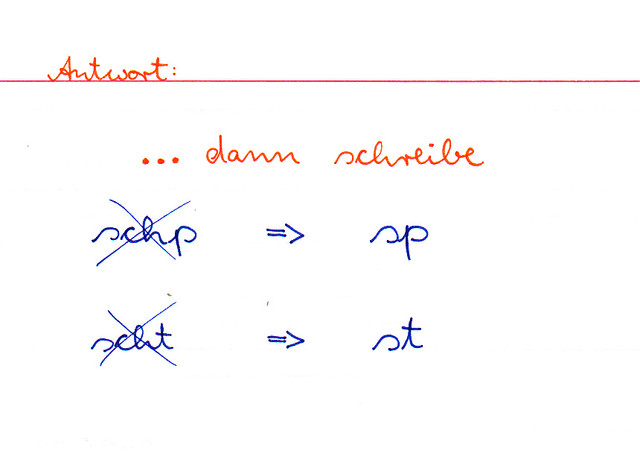 Antwort:
... dann schreibe
schp => sp
scht => st